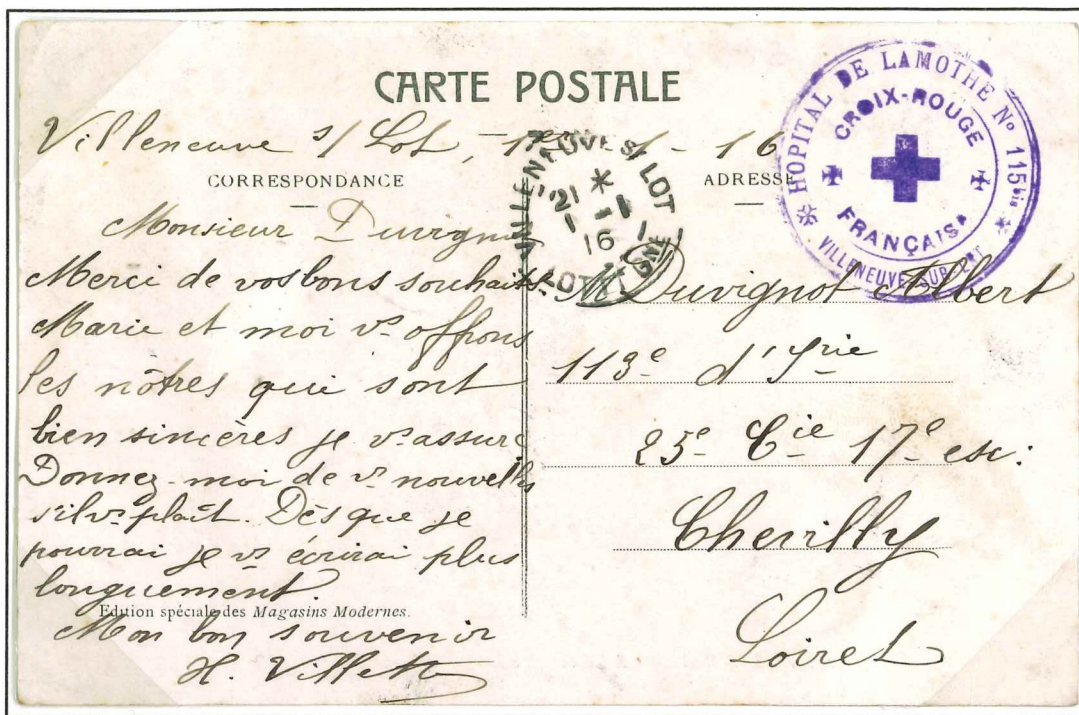 CARTE POSTALE
Villeneuve s/ Lot, 1-16
CORRESPONDANCE
Monsieur Duvigno
Merci de vos bons souhaits.
Marie et moi vs offrons
les nôtres qui sont
bien sincères je vs assure
Donnez-moi de vs nouvelles
s'il vs plaît. Dès que je
pourrai je vs écrirai plus
longuement.
Edition spéciale des Magasins Modernes.
Mon bon souvenir
H. Villette
VILLENEUVE S/ LOT
21 - 1
16
LOT ET GNE
HOPITAL DE LAMOTHE No 115bis
VILLENEUVE-SUR-LOT
CROIX-ROUGE
FRANÇAISE
ADRESSE
M Duvignot Albert
113e d'Irie
25e Cie 17e esc:
Chevilly
Loiret